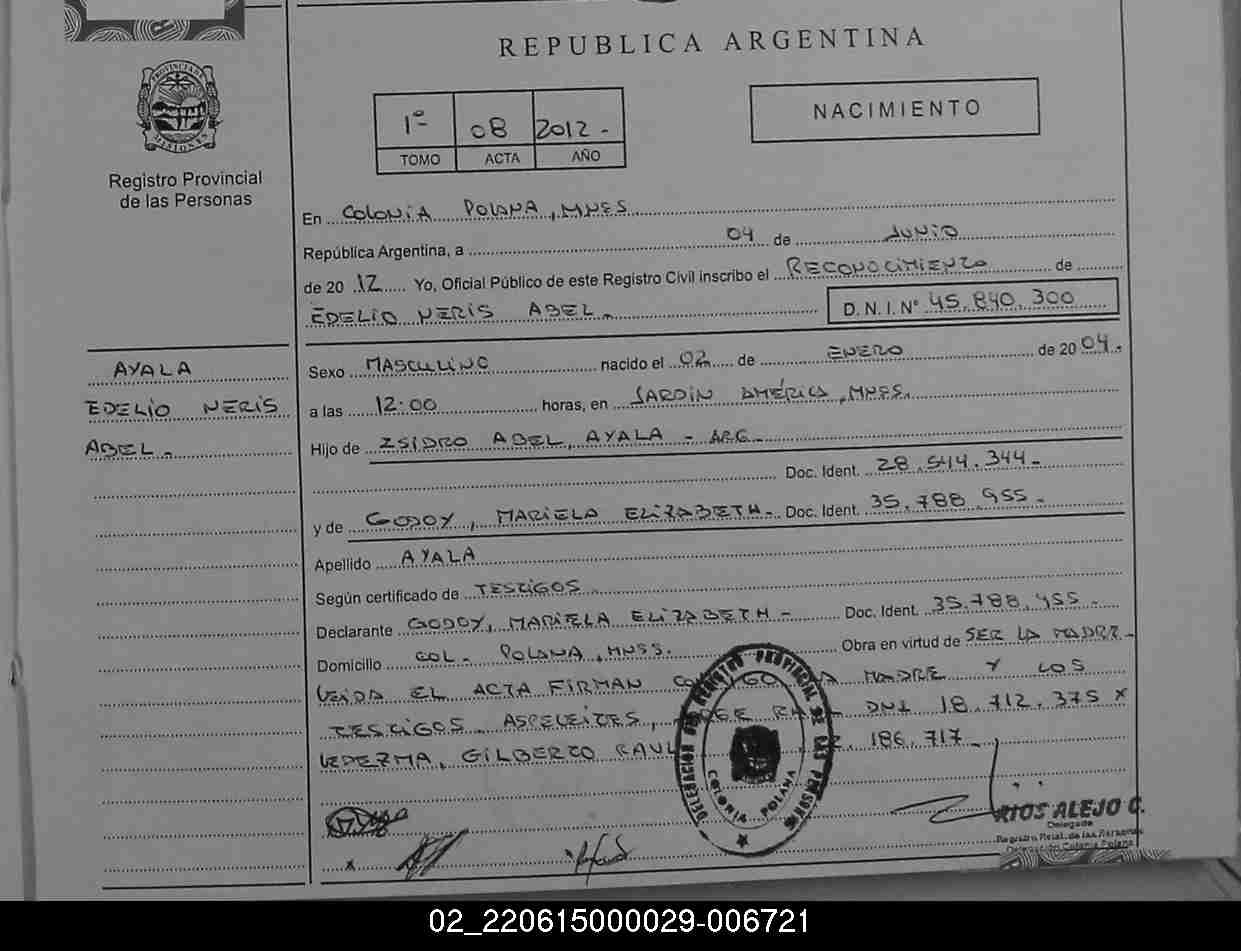 REPUBLICA ARGENTINA
PROVINCIA DE MISIONES
Registro Provincial
de las Personas
1º 08 2012.-
TOMO ACTA AÑO
NACIMIENTO
En COLONIA POLANA, MNES
República Argentina, a 04 de JUNIO
de 20 12 Yo, Oficial Público de este Registro Civil inscribo el RECONOCIMIENTO de
EDELIO NERIS ABEL.
D. N. I. Nº 45.840.300
AYALA
EDELIO NERIS
ABEL.-
Sexo MASCULINO nacido el 02 de ENERO de 20 04.-
a las 12:00 horas, en JARDIN AMÉRICA, MNES.
Hijo de ISIDRO ABEL, AYALA - ARG.-
Doc. Ident. 28.544.344.-
y de GODOY, MARIELA ELIZABETH.- Doc. Ident. 35.788.955.-
Apellido AYALA
Según certificado de TESTIGOS
Declarante GODOY, MARIELA ELIZABETH.- Doc. Ident. 35.788.955.-
Domicilio COL. POLANA, MNES. Obra en virtud de SER LA MADRE.-
LEIDA EL ACTA FIRMAN MADRE Y LOS
TESTIGOS DNI 18.712.375 X
LEDEZMA, GILBERTO RAUL 186.717.-
DELEGACION DEL REGISTRO PROVINCIAL DE LAS PERSONAS
COLONIA POLANA
RIOS ALEJO C.
Delegado
Registro Pcial. de las Personas
Delegación Colonia Polana
02_220615000029-006721